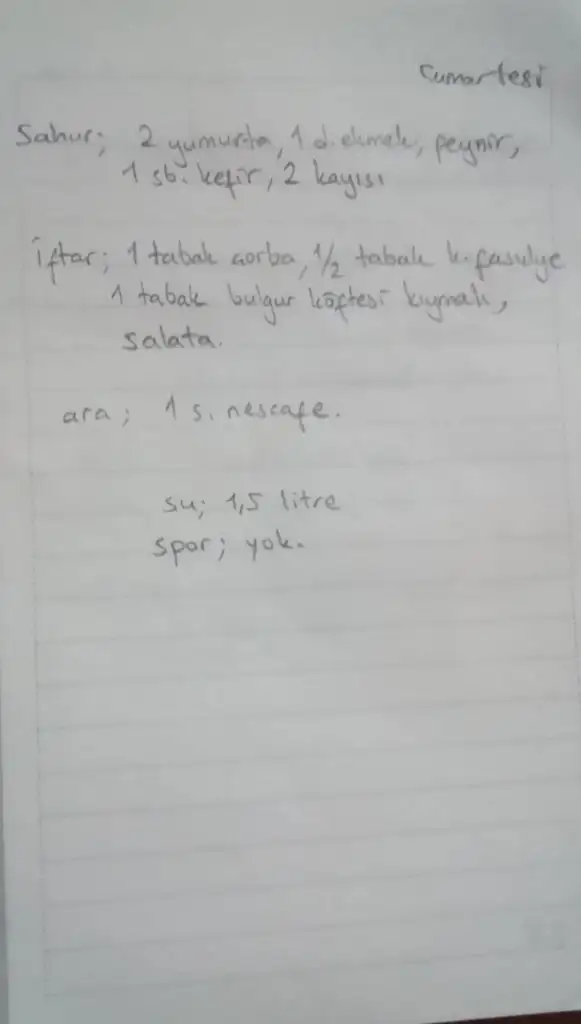 Cumartesi
Sahur; 2 yumurta, 1 d. ekmek, peynir,
1 sb. kefir, 2 kayısı
iftar; 1 tabak çorba, 1/2 tabak k. fasulye
1 tabak bulgur köftesi kıymalı,
salata.
ara; 1 s. nescafe.
su; 1,5 litre
spor; yok.